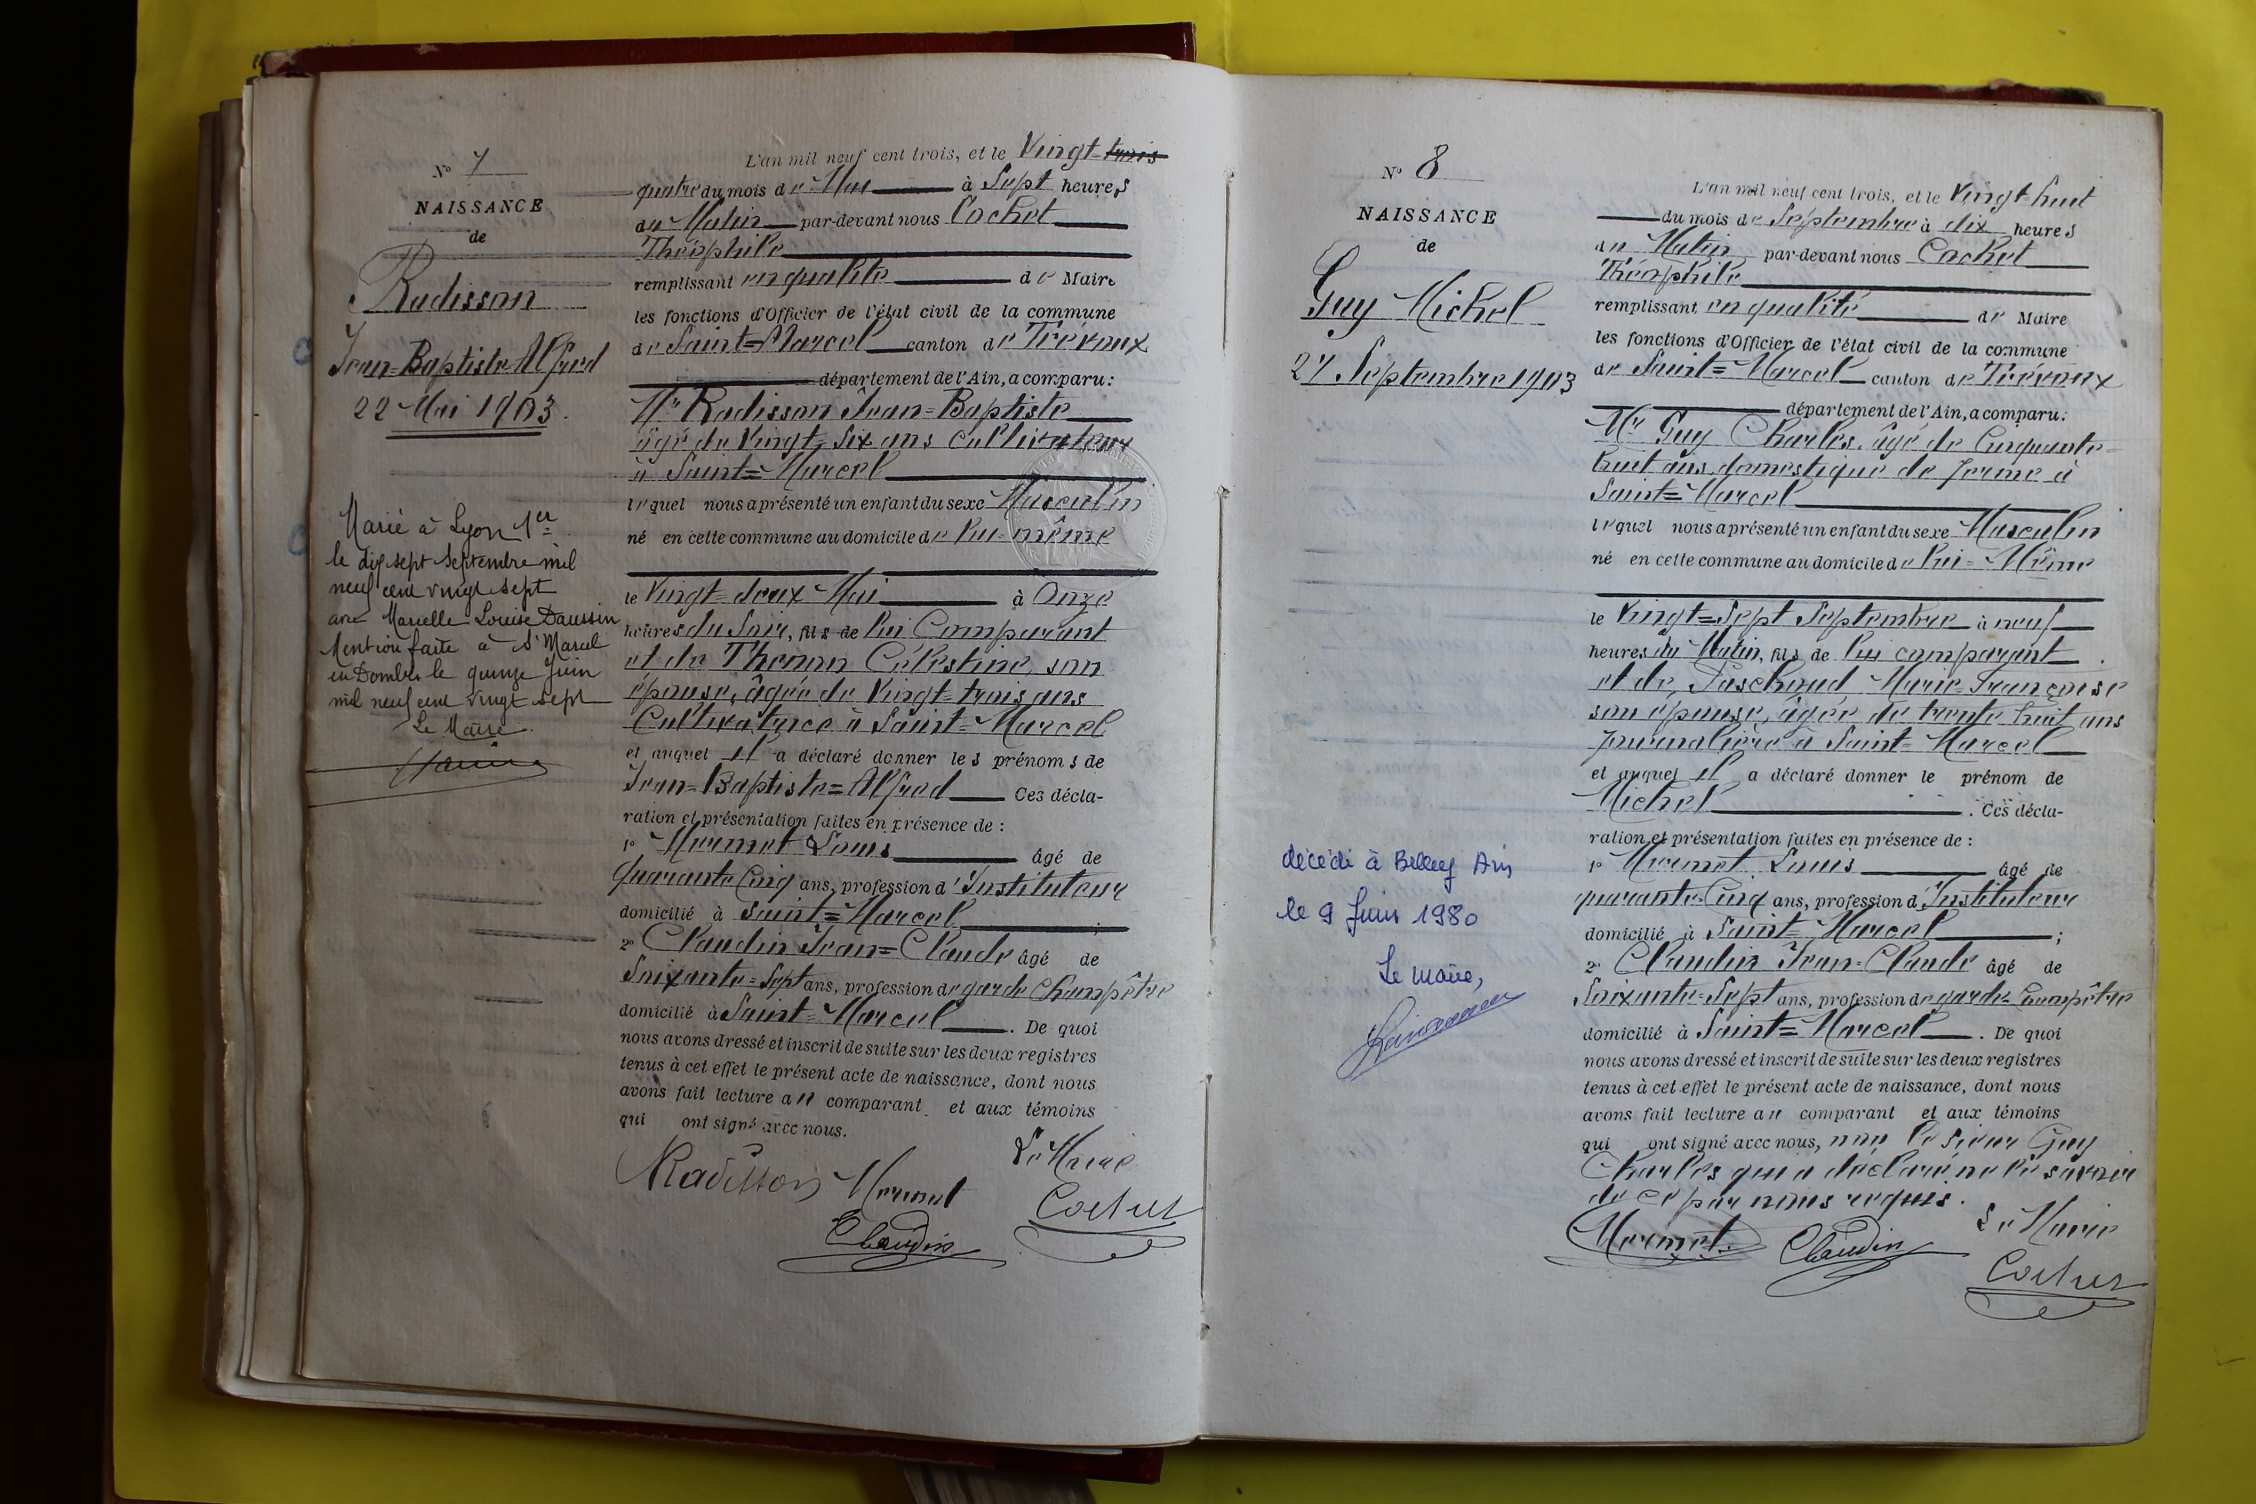 N° 7
NAISSANCE
de
Radisson
Jean=Baptiste Alfred
22 Mai 1903.
Marié à Lyon 1er
le dix sept Septembre mil
neuf cent vingt sept
avec Marcelle Louise Daussin
Mention faite à St Marcel
en Dombes le quinze Juin
mil neuf cent vingt sept
Le Maire
L'an mil neuf cent trois, et le Vingt-trois
quatre du mois de Mai à Sept heures
du Matin par-devant nous Cochet
Théophile
remplissant en qualité de Maire
les fonctions d'Officier de l'état civil de la commune
de Saint=Marcel canton de Trévoux
département de l'Ain, a comparu:
Mr Radisson Jean=Baptiste
âgé de Vingt=six ans Cultivateur
à Saint=Marcel
lequel nous a présenté un enfant du sexe Masculin
né en cette commune au domicile de lui-même
le Vingt=deux Mai à Onze
heures du Soir, fils de lui Comparant
et de Thenon Célestine, son
épouse, âgée de Vingt=trois ans
Cultivatrice à Saint=Marcel
et auquel il a déclaré donner les prénoms de
Jean=Baptiste=Alfred Ces décla-
ration et présentation faites en présence de :
1° Mermet Louis âgé de
Quarante Cinq ans, profession d'Instituteur
domicilié à Saint=Marcel ;
2° Claudin Jean=Claude âgé de
Soixante=Sept ans, profession de garde Champêtre
domicilié à Saint=Marcel . De quoi
nous avons dressé et inscrit de suite sur les deux registres
tenus à cet effet le présent acte de naissance, dont nous
avons fait lecture au comparant et aux témoins
qui ont signé avec nous.
Le Maire
Radisson Mermet
Cochet
Claudin
N° 8
NAISSANCE
de
Guy Michel
27 Septembre 1903
décédé à Belley Ain
le 9 Juin 1980
Le Maire,
L'an mil neuf cent trois, et le Vingt=huit
du mois de Septembre à dix heures
du Matin par-devant nous Cochet
Théophile
remplissant en qualité de Maire
les fonctions d'Officier de l'état civil de la commune
de Saint=Marcel canton de Trévoux
département de l'Ain, a comparu:
Mr Guy Charles, âgé de Cinquante=
huit ans domestique de ferme à
Saint=Marcel
lequel nous a présenté un enfant du sexe Masculin
né en cette commune au domicile de lui=Même
le Vingt=Sept Septembre à neuf
heures du Matin, fils de lui comparant
et de Paschoud Marie=Françoise
son épouse, âgée de trente huit ans
journalière à Saint=Marcel
et auquel il a déclaré donner le prénom de
Michel . Ces décla-
ration et présentation faites en présence de :
1° Mermet Louis âgé de
quarante=Cinq ans, profession d'Instituteur
domicilié à Saint=Marcel ;
2° Claudin Jean=Claude âgé de
Soixante=Sept ans, profession de garde=Champêtre
domicilié à Saint=Marcel . De quoi
nous avons dressé et inscrit de suite sur les deux registres
tenus à cet effet le présent acte de naissance, dont nous
avons fait lecture au comparant et aux témoins
qui ont signé avec nous, non le sieur Guy
Charles qui a déclaré ne le savoir
de ce par nous requis.
Le Maire
Mermet Claudin
Cochet